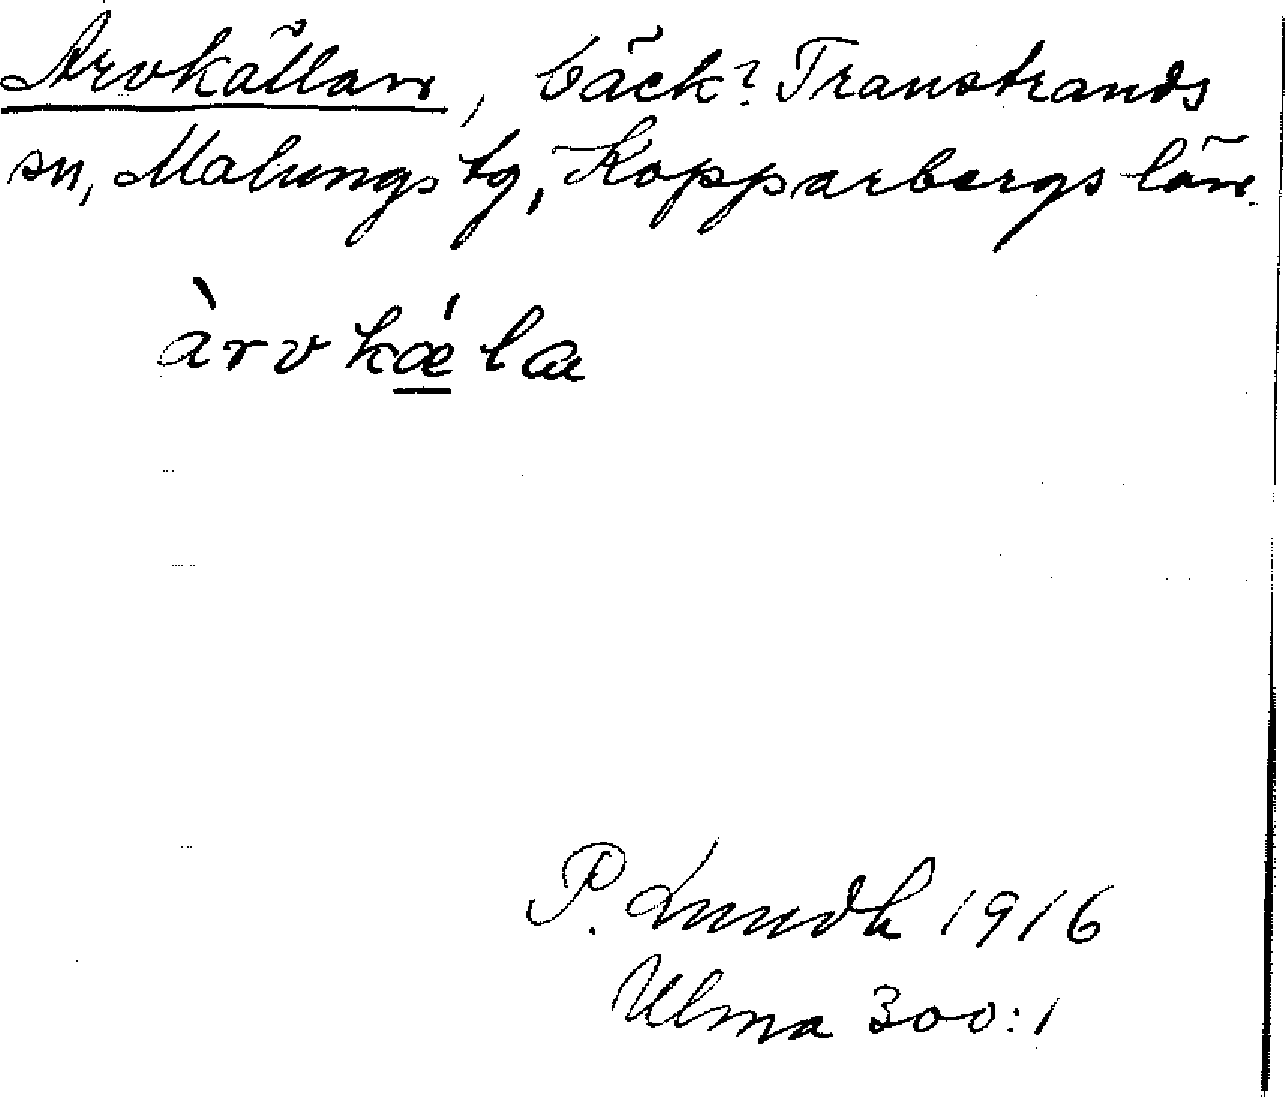 Arvkällan, bäck? Transtrands
sn, Malungs tg, Kopparbergs län.
àrvkǽla
P. Lundh 1916
Ulma 300:1